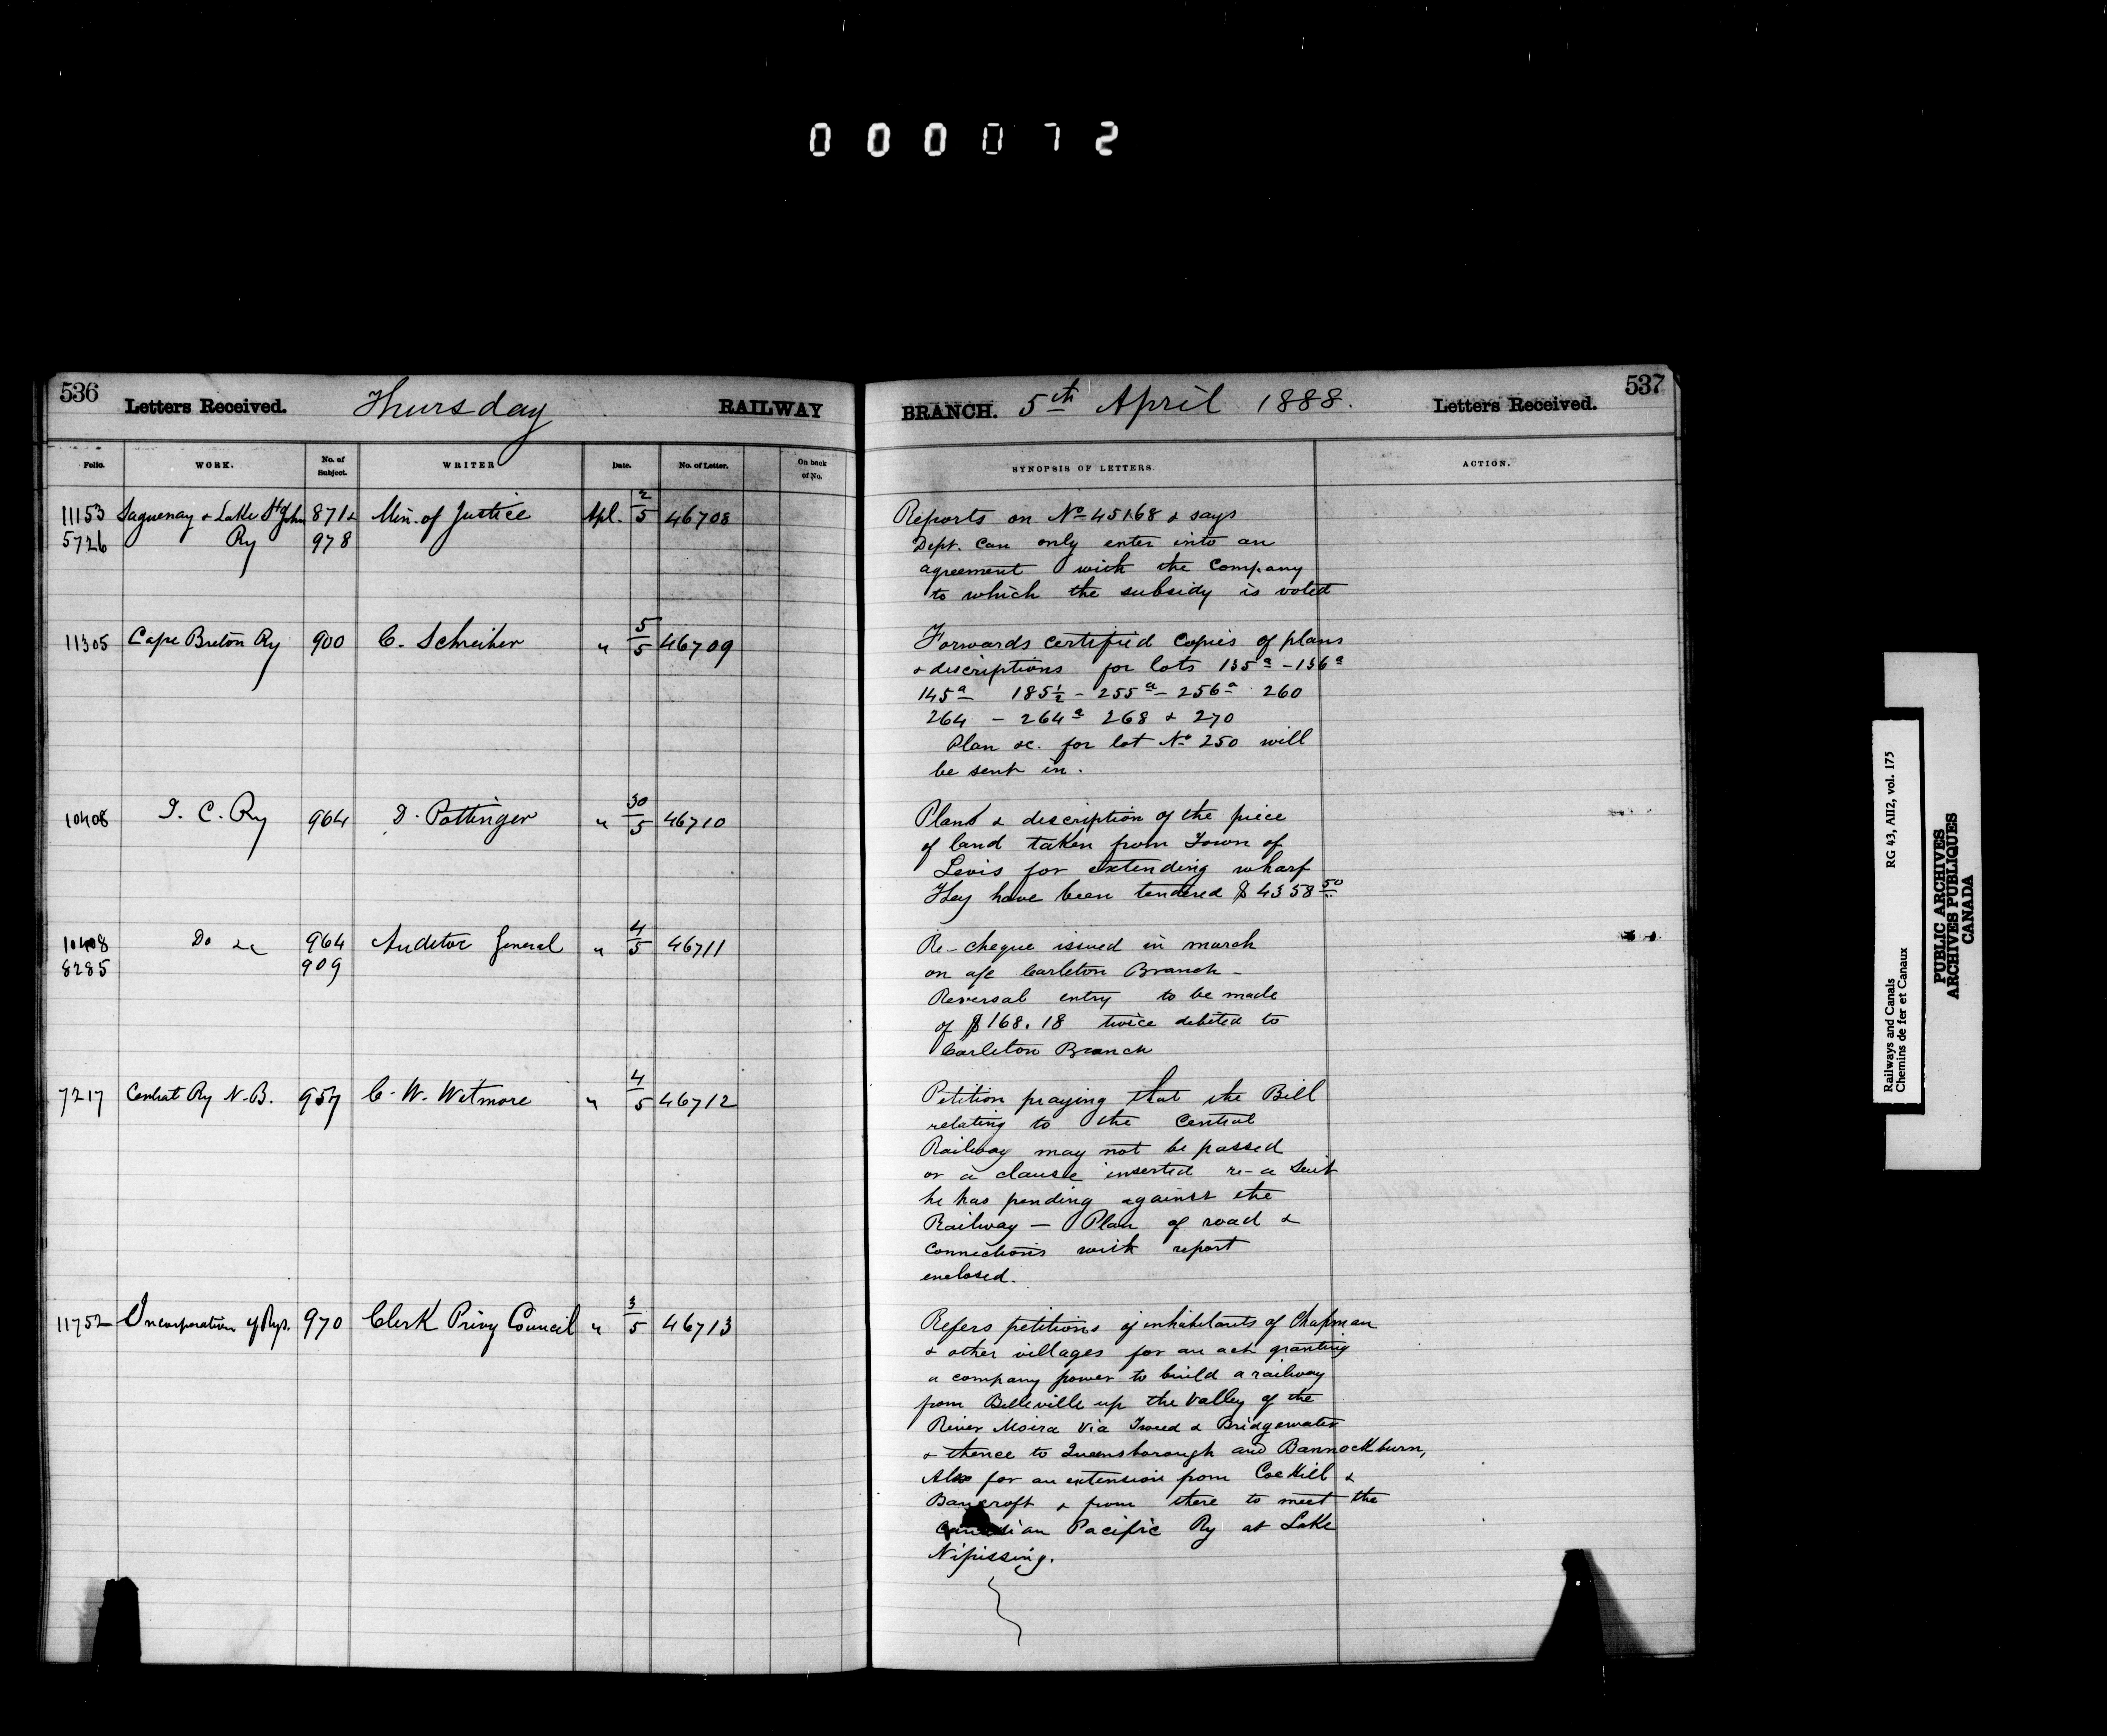 000072
536 Letters Received. Thursday RAILWAY
BRANCH. 5th April 1888. Letters Received. 537
Folio. WORK. No. of Subject. WRITER Date. No. of Letter. On back of No.
SYNOPSIS OF LETTERS. ACTION.
11153 Saguenay & Lake St John 871 & Min. of Justice Apl. 2/5 46708
5726 Ry 978
Reports on No 45168 & says
Dept. can only enter into an
agreement with the Company
to which the subsidy is voted
11305 Cape Breton Ry 900 C. Schreiber " 5/5 46709
Forwards certified copies of plans
& descriptions for lots 135a - 136a
145a 185½ - 255a - 256a 260
264 - 264a 268 & 270
Plan &c. for lot No 250 will
be sent in.
10408 I. C. Ry 964 D. Pottinger " 30/5 46710
Plans & description of the piece
of land taken from Town of
Levis for extending wharf
They have been tendered $4358 50
10408 Do &c 964 Auditor General " 4/5 46711
8285 909
Re-cheque issued in march
on a/c Carleton Branch -
Reversal entry to be made
of $168.18 twice debited to
Carleton Branch
7217 Central Ry N.B. 957 C. W. Wetmore " 4/5 46712
Petition praying that the Bill
relating to the Central
Railway may not be passed
or a clause inserted re-a suit
he has pending against the
Railway — Plan of road &
Connections with report
enclosed.
11752 Incorporation of Rys. 970 Clerk Privy Council " 3/5 46713
Refers petitions of inhabitants of Chapman
& other villages for an act granting
a company power to build a railway
from Belleville up the Valley of the
River Moira via Tweed & Bridgewater
& thence to Queensborough and Bannockburn,
Also for an extension from Coe Hill &
Bancroft & from there to meet the
Canadian Pacific Ry at Lake
Nipissing.
Railways and Canals RG 43, AII2, vol. 175
Chemins de fer et Canaux
PUBLIC ARCHIVES
ARCHIVES PUBLIQUES
CANADA